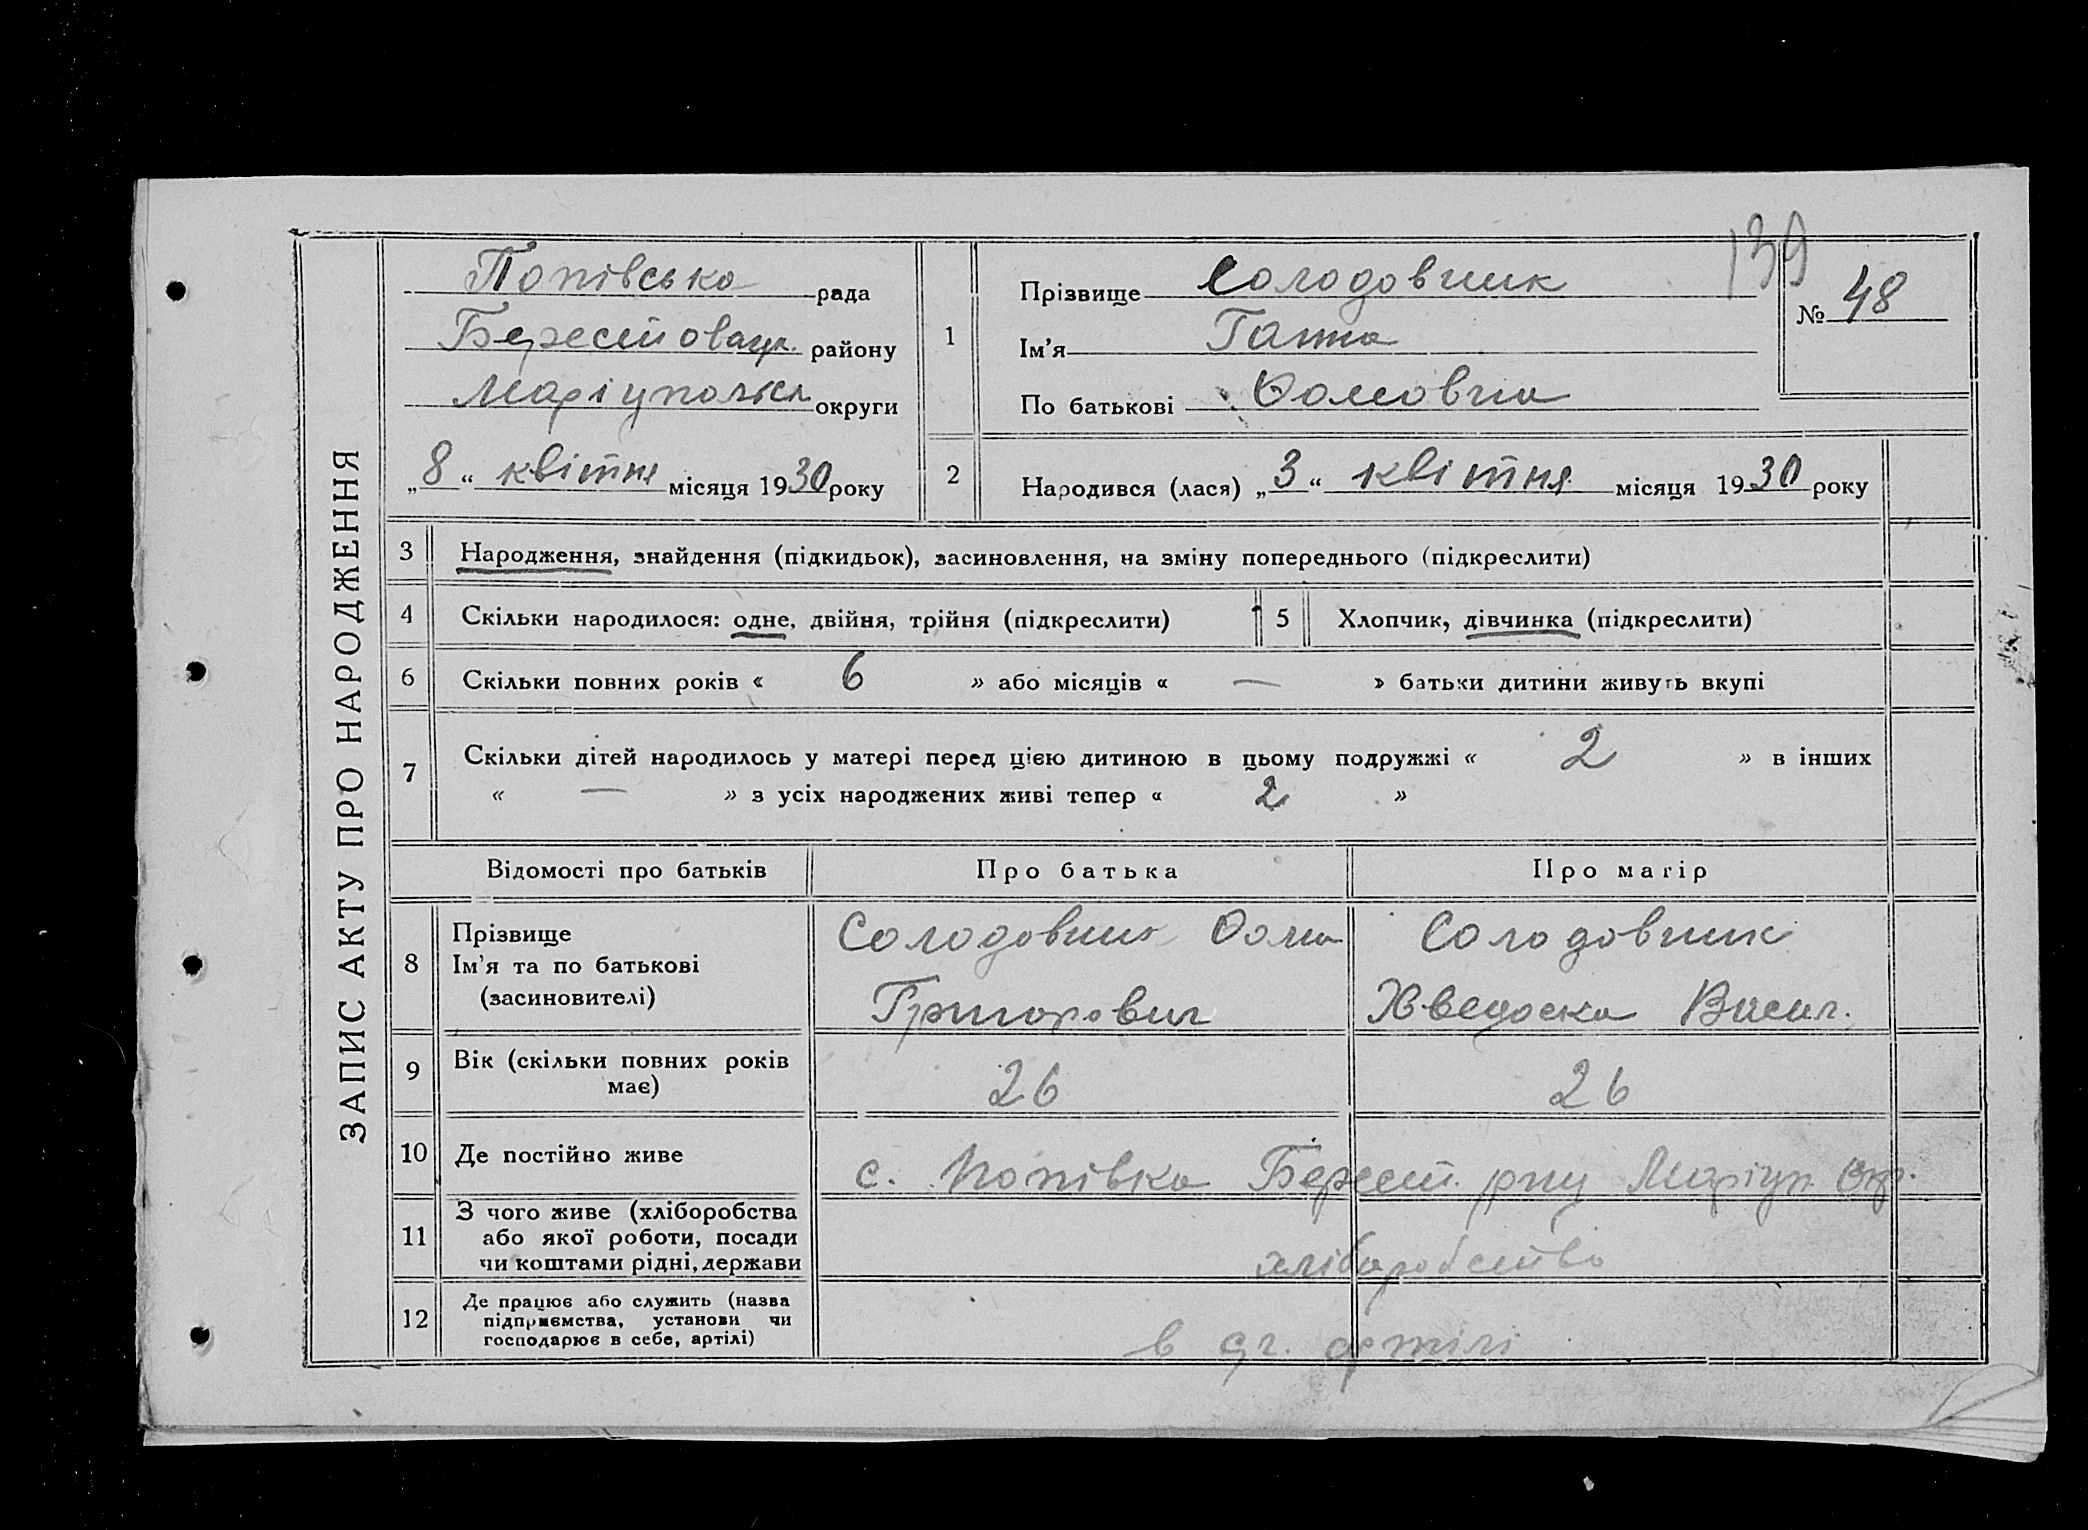 139
ЗАПИС АКТУ ПРО НАРОДЖЕННЯ
Попівська рада
Берестовацьк. району
Маріупольськ округи
„8“ квітня місяця 1930 року
1
Прізвище Солодовник
Ім'я Ганна
По батькові Фомовна
№ 48
2
Народився (лася) „3“ квітня місяця 1930 року
3 Народження, знайдення (підкидьок), засиновлення, на зміну попереднього (підкреслити)
4 Скільки народилося: одне, двійня, трійня (підкреслити) 5 Хлопчик, дівчинка (підкреслити)
6 Скільки повних років « 6 » або місяців « — » батьки дитини живуть вкупі
7 Скільки дітей народилось у матері перед цією дитиною в цьому подружжі « 2 » в інших
« — » з усіх народжених живі тепер « 2 »
Відомості про батьків Про батька Про матір
8 Прізвище
Ім'я та по батькові
(засиновителі)
Солодовник Фома
Григорович
Солодовник
Хведоска Васил.
9 Вік (скільки повних років
має)
26 26
10 Де постійно живе с. Попівка Берест. р-ну Маріуп. Окр.
11 З чого живе (хліборобства
або якої роботи, посади
чи коштами рідні, держави
хліборобство
12 Де працює або служить (назва
підприємства, установи чи
господарює в себе, артілі)
в с/г. артілі